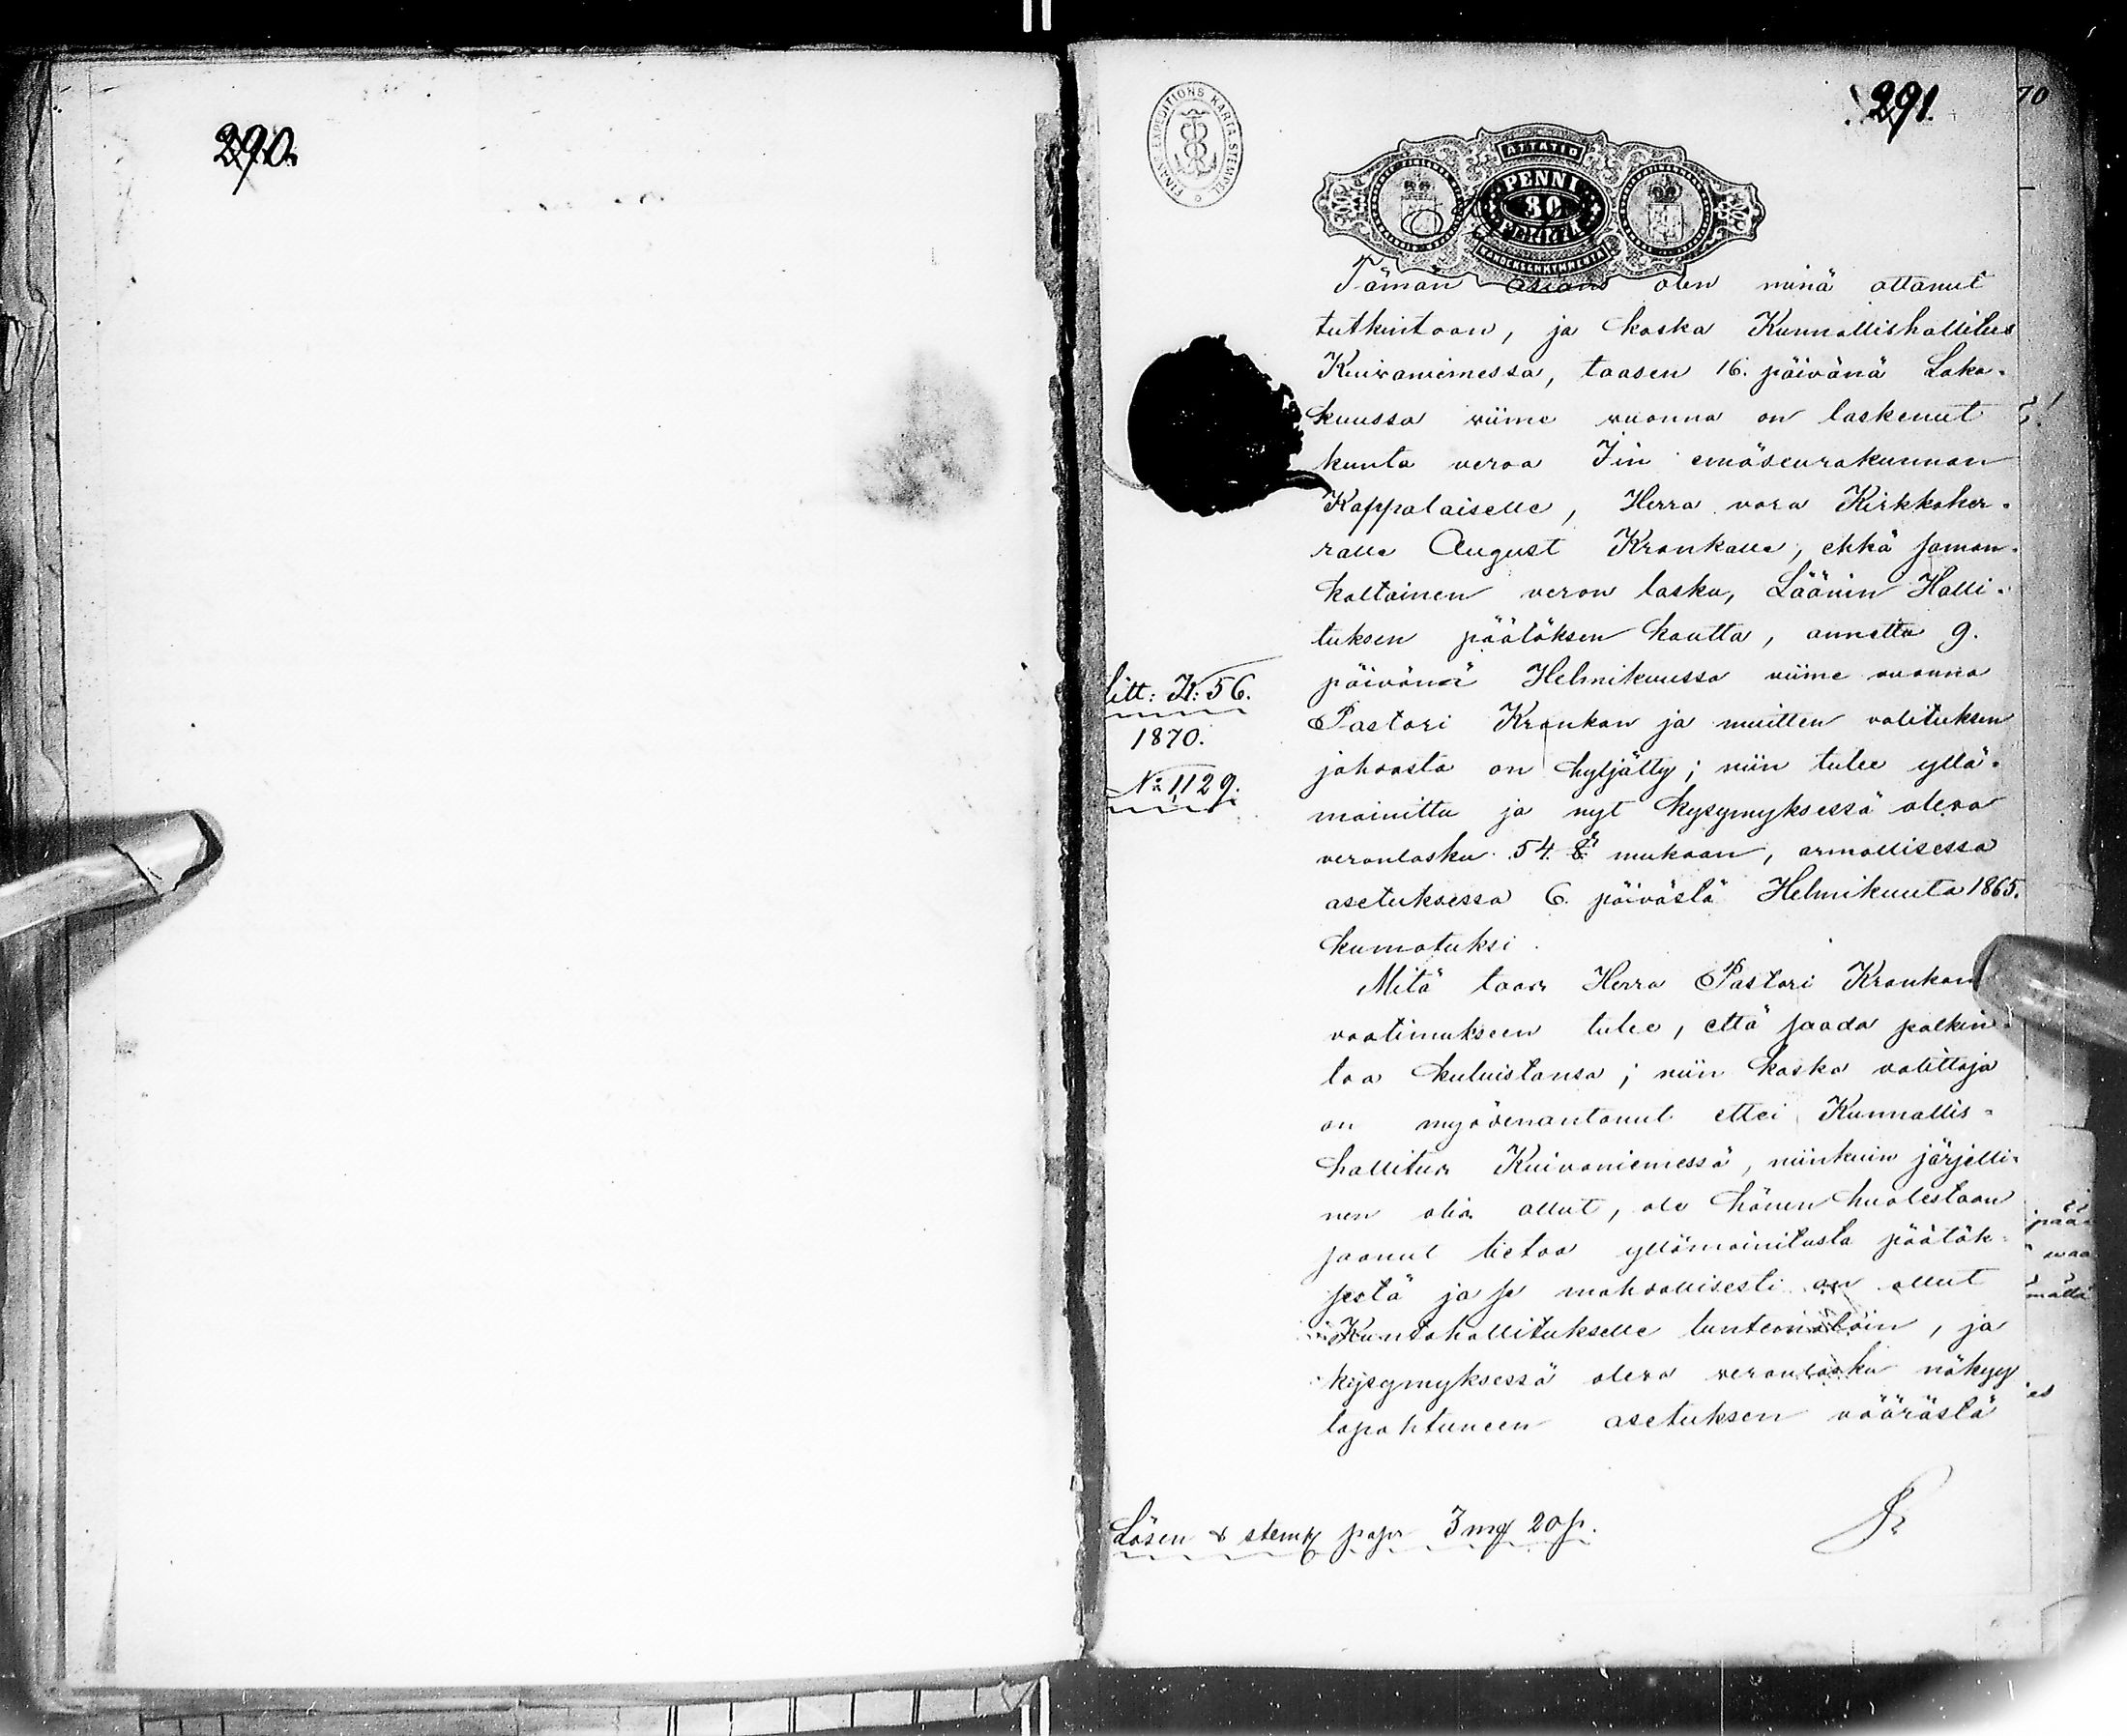 290.
291.
70
FINANS EXPEDITIONS KARTA STEMPEL
ÅTTATIO
PENNI
80
PENNIÄ
KAHDEKSANKYMMENTÄ
Tämän asian olen minä ottanut
tutkintoon, ja koska Kunnallishallitus
Kuivaniemessä, taasen 16. päivänä Loka-
kuussa viime vuonna on laskenut
kunta veroa Iin emäseurakunnan
Kappalaiselle, Herra vara Kirkkoher-
ralle August Krankalle, ehkä saman-
kaltainen veron lasku, Läänin Halli-
tuksen päätöksen kautta, annettu 9.
päivänä Helmikuussa viime vuonna
Pastori Krankan ja muitten valituksen
johdosta on hyljätty; niin tulee yllä-
mainittu ja nyt kysymyksessä oleva
veronlasku 54. § mukaan, armollisessa
asetuksessa 6. päivästä Helmikuuta 1865.
kumotuksi.
Mitä taas Herra Pastori Krankan
vaatimukseen tulee, että saada palkin-
toa kuluistansa; niin koska valittaja
on myödenantanut ettei Kunnallis-
hallitus Kuivaniemessä, niinkuin järjelli-
nen olis ollut, ole hänen huolestaan
saanut tietoa yllämainitusta päätök-
sestä ja se mahdollisesti on ollut
Kuntahallitukselle tuntematoin, ja
kysymyksessä oleva veronlasku näkyy
tapahtuneen asetuksen väärästä
litt: K: 56.
1870.
No 1,129.
Lösen & stemp papr 3 mk 20 p.
pää
waa
mällä
es